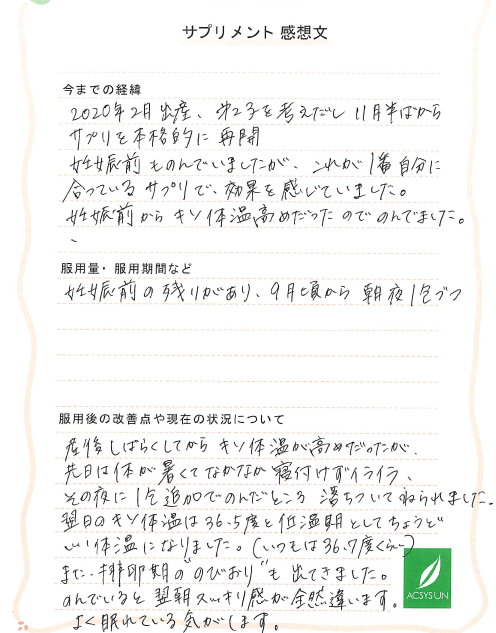 サプリメント 感想文
今までの経緯
2020年2月 出産、第2子を考えだし 11月半ばから
サプリを本格的に 再開
妊娠前ものんでいましたが、これが1番自分に
合っているサプリで、効果を感じていました。
妊娠前から キソ体温高めだったのでのんでました。
、
服用量・服用期間など
妊娠前の残りがあり、9月頃から 朝夜1包づつ
服用後の改善点や現在の状況について
産後しばらくしてから キソ体温が高めだったが、
先日は体が暑くてなかなか寝付けずイライラ、
その夜に1包追加でのんだところ 落ちついてねられました。
翌日のキソ体温は36.5度と低温期としてちょうど
いい体温になりました。(いつもは36.7度くらい)
また、排卵期の"のびおり"も 出てきました。
のんでいると 翌朝スッキリ感が全然違います。
よく眠れている気がします。
ACSYSUN